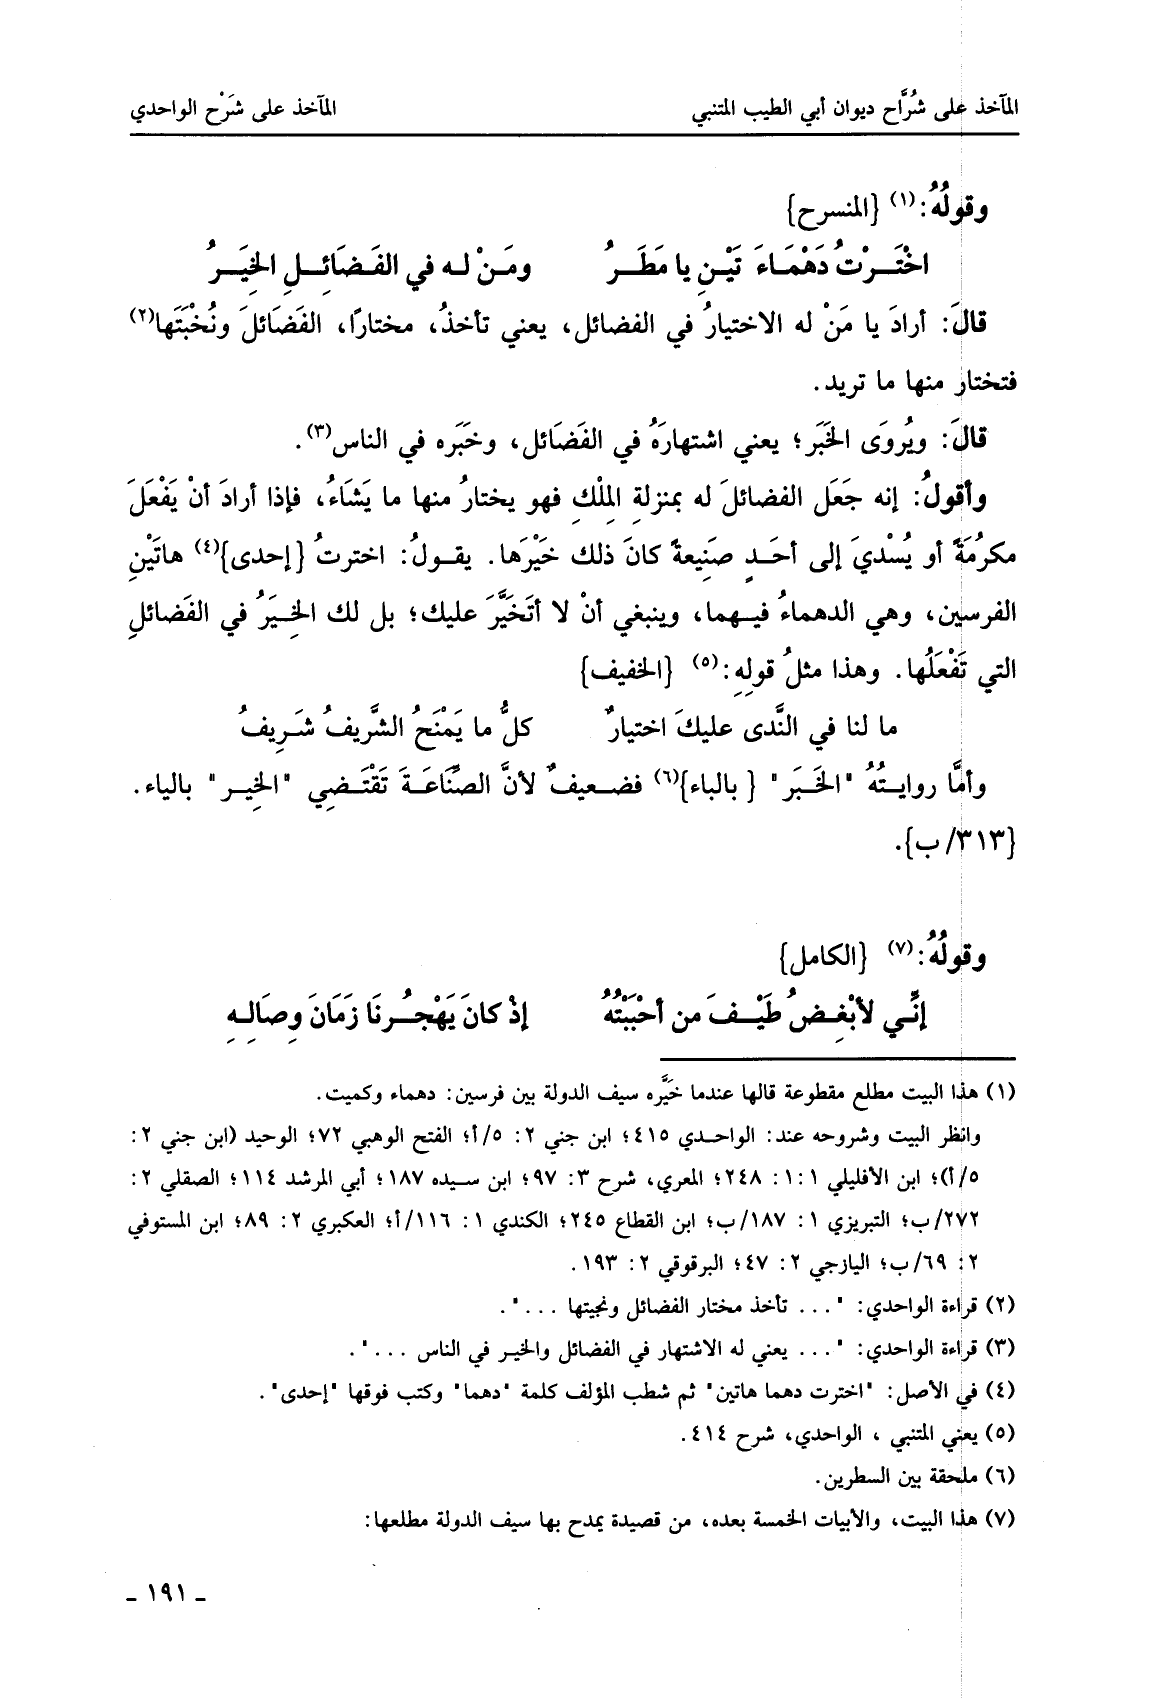 المآخذ على شُرَّاح ديوان أبي الطيب المتنبي المآخذ على شَرْح الواحدي
وقولُهُ:(١) {المنسرح}
اخْتَـرْتُ دَهْمَـاءَ تَيْـنِ يا مَطَـرُ ومَـنْ لـه في الفَـضَائِـلِ الخِيَـرُ
قالَ: أرادَ يا مَنْ له الاختيارُ في الفضائل، يعني تأخذُ، مختارًا، الفَضَائلَ ونُخْبَتَها(٢)
فتختار منها ما تريد.
قالَ: ويُروَى الخَبَر؛ يعني اشتهارَهُ في الفَضَائل، وخَبَره في الناس(٣).
وأقولُ: إنه جَعَل الفضائلَ له بمنزلةِ المِلْكِ فهو يختارُ منها ما يَشَاءُ، فإذا أرادَ أنْ يَفْعَلَ
مكرُمَةً أو يُسْديَ إلى أحَدٍ صَنِيعةً كانَ ذلك خَيْرَها. يقـولُ: اخترتُ {إحدى}(٤) هاتَيْنِ
الفرسين، وهي الدهماءُ فيـهما، وينبغي أنْ لا أتَخَيَّرَ عليك؛ بل لك الخِـيَرُ في الفَضائلِ
التي تَفْعَلُها. وهذا مثلُ قولِهِ:(٥) {الخفيف}
ما لنا في النَّدى عليكَ اختيارٌ كلُّ ما يَمْنَحُ الشَّريفُ شَـرِيفُ
وأمَّا روايـتُهُ "الخَـبَر" {بالباء}(٦) فضـعيفٌ لأنَّ الصِّنَاعَـةَ تَقْتَـضِي "الخِيـر" بالياء.
{٣١٣/ب}.
وقولُهُ:(٧) {الكامل}
إنَّـي لأبْغِـضُ طَيْـفَ من أحْبَبْتُهُ إذْ كانَ يَهْجُـرنَا زَمَانَ وِصَالِـهِ
(١) هذا البيت مطلع مقطوعة قالها عندما خَيَّره سيف الدولة بين فرسين: دهماء وكميت.
وانظر البيت وشروحه عند: الواحـدي ٤١٥؛ ابن جني ٢: ٥/أ؛ الفتح الوهبي ٧٢؛ الوحيد (ابن جني ٢:
٥/أ)؛ ابن الأفليلي ١: ١: ٢٤٨؛ المعري، شرح ٣: ٩٧؛ ابن سـيده ١٨٧؛ أبي المرشد ١١٤؛ الصقلي ٢:
٢٧٢/ب؛ التبريزي ١: ١٨٧/ب؛ ابن القطاع ٢٤٥؛ الكندي ١: ١١٦/أ؛ العكبري ٢: ٨٩؛ ابن المستوفي
٢: ٦٩/ب؛ اليازجي ٢: ٤٧؛ البرقوقي ٢: ١٩٣.
(٢) قراءة الواحدي: "... تأخذ مختار الفضائل ونجيتها ...".
(٣) قراءة الواحدي: "... يعني له الاشتهار في الفضائل والخيـر في الناس ...".
(٤) في الأصل: "اخترت دهما هاتين" ثم شطب المؤلف كلمة "دهما" وكتب فوقها "إحدى".
(٥) يعني المتنبي ، الواحدي، شرح ٤١٤.
(٦) ملحقة بين السطرين.
(٧) هذا البيت، والأبيات الخمسة بعده، من قصيدة يمدح بها سيف الدولة مطلعها:
ـ ١٩١ ـ